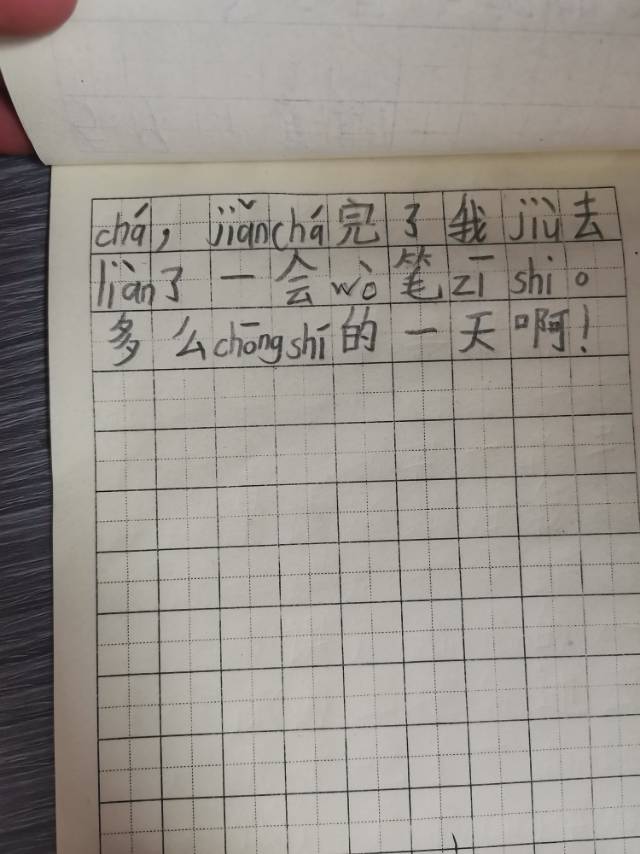 chá，jiǎnchá完了我jiù去
liàn了一会wò笔zī shi。
多么chōngshí的一天啊！